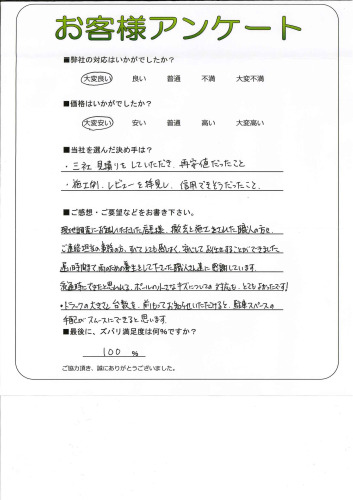 お客様アンケート
■弊社の対応はいかがでしたか？
大変良い 良い 普通 不満 大変不満
■価格はいかがでしたか？
大変安い 安い 普通 高い 大変高い
■当社を選んだ決め手は？
・三社見積りをしていただき、再安値だったこと
・施工例、レビューを拝見し、信用できそうだったこと。
■ご感想・ご要望などをお書き下さい。
現地調査にお越しいただいた店長様、撤去と施工をされた職人の方々、
ご連絡担当の事務の方、すべてとても感じよく、安心してお任せすることができました
遅い時間まで雨のための養生をして下さった職人さん達に感謝しています。
交通時にできたと思われる、ポールの小さなキズについての対応も、とてもよかったです!
・トラックの大きさ、台数を、前もってお知らせいただけると、駐車スペースの
手配がスムーズにできると思います。
■最後に、ズバリ満足度は何%ですか？
100 %
ご協力頂き、誠にありがとうございました。